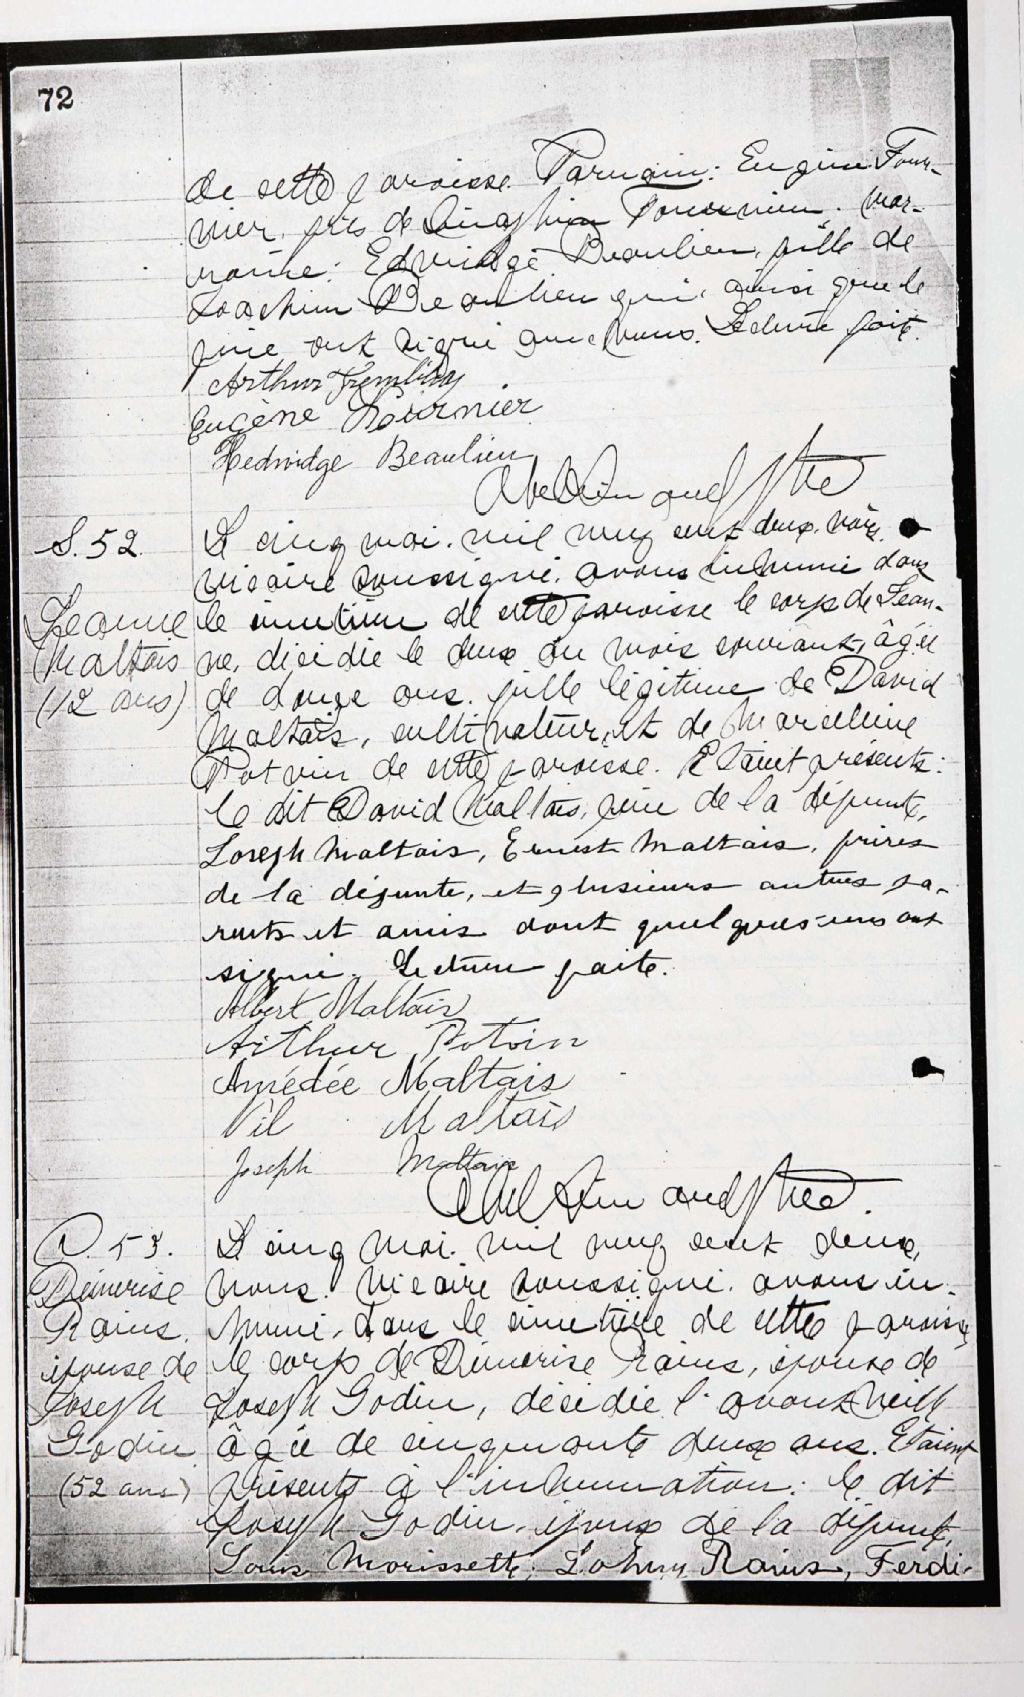 72
de cette paroisse. Parrain: Eugène Four-
nier, fils de Fournier; mar-
raine: Edwidge Beaulieu, fille de
Joachim Beaulieu qui, ainsi que le
père ont signé avec nous. Lecture faite.
Arthur Tremblay
Eugène Fournier
Hedwidge Beaulieu
Abel Simard Ptre
S. 52.
Jeanne
Maltais
(12 ans)
Le cinq mai mil neuf cent deux, nous,
vicaire soussigné, avons inhumé dans
le cimetière de cette paroisse le corps de Jean-
ne, décédée le deux du mois courant, âgée
de douze ans, fille légitime de David
Maltais, cultivateur, et de Marcelline
Potvin de cette paroisse. Etaient présents:
le dit David Maltais, père de la défunte,
Joseph Maltais, Ernest Maltais, frères
de la défunte, et plusieurs autres pa-
rents et amis dont quelques-uns ont
signé. Lecture faite.
Albert Maltais
Arthur Potvin
Amédée Maltais
Maltais
Joseph Maltais
Abel Simard Ptre.
S. 53.
Démerise
Rains.
épouse de
Joseph
Godin
(52 ans)
Le cinq mai mil neuf cent deux,
nous, vicaire soussigné, avons in-
humé, dans le cimetière de cette paroisse,
le corps de Démerise Rains, épouse de
Joseph Godin, décédée l'avant veille
âgée de cinquante deux ans. Etaient
présents à l'inhumation: le dit
Joseph Godin, époux de la défunte,
Louis Morissette, Johny Rains, Ferdi-